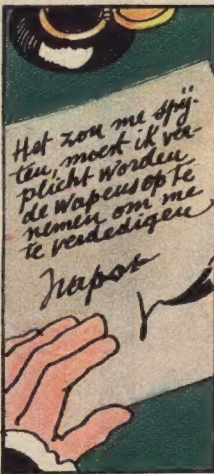 Het zou me spij-
ten, moest ik ver-
plicht worden
de wapens op te
nemen om me
te verdedigen
Napol